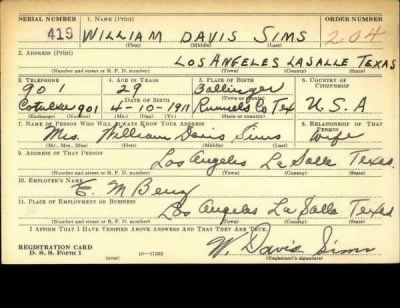 SERIAL NUMBER 1. NAME (Print) ORDER NUMBER
419 WILLIAM DAVIS SIMS 204
(First) (Middle) (Last)
2. ADDRESS (Print)
LOS ANGELES LASALLE TEXAS
(Number and street or R. F. D. number) (Town) (County) (State)
3. TELEPHONE 4. AGE IN YEARS 5. PLACE OF BIRTH 6. COUNTRY OF CITIZENSHIP
901 29 Ballinger
DATE OF BIRTH (Town or county)
Cotulla 901 4-10-1911 Runnels Co Tex U.S.A
(Exchange) (Number) (Mo.) (Day) (Yr.) (State or country)
7. NAME OF PERSON WHO WILL ALWAYS KNOW YOUR ADDRESS 8. RELATIONSHIP OF THAT PERSON
Mrs. William Davis Sims wife
(Mr., Mrs., Miss) (First) (Middle) (Last)
9. ADDRESS OF THAT PERSON
Los Angeles La Salle Texas
(Number and street or R. F. D. number) (Town) (County) (State)
10. EMPLOYER'S NAME
E. M Berry
11. PLACE OF EMPLOYMENT OR BUSINESS
Los Angeles La Salle Texas
(Number and street or R. F. D. number) (Town) (County) (State)
I AFFIRM THAT I HAVE VERIFIED ABOVE ANSWERS AND THAT THEY ARE TRUE.
REGISTRATION CARD
D. S. S. Form 1 W. Davis Sims
(Registrant's signature)